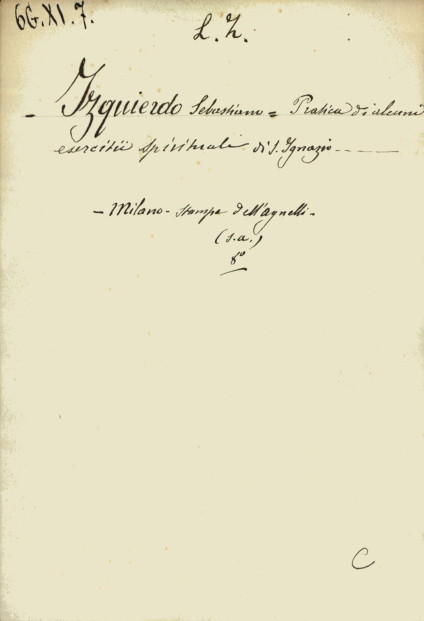 6G.XI.7.
L. Z.
- Izquierdo Sebastiano = Pratica di alcuni
esercitii spirituali di S. Ignazio
- Milano - stampa dell'Agnelli -
(s.a.)
8°
C